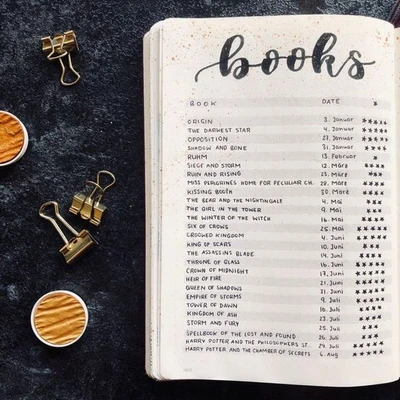 books
BOOK DATE ★
ORIGIN 3. Januar ★★★★★
THE DARKEST STAR 4. Januar ★★★★
OPPOSITION 27. Januar ★★★★
SHADOW AND BONE 31. Januar ★★★
RUHM 13. Februar ★
SIEGE AND STORM 12. März ★★★★
RUIN AND RISING 23. März ★★★★
MISS PEREGRINES HOME FOR PECULIAR CH. 29. März ★★★★
KISSING BOOTH 30. März ★★★★
THE BEAR AND THE NIGHTINGALE 4. Mai ★★★
THE GIRL IN THE TOWER 9. Mai ★★★
THE WINTER OF THE WITCH 16. Mai ★★★★
SIX OF CROWS 25. Mai ★★★★★
CROOKED KINGDOM 4. Juni ★★★★★
KING OF SCARS 10. Juni ★★★
THE ASSASSINS BLADE 14. Juni ★★★★
THRONE OF GLASS 16. Juni ★★★★★
CROWN OF MIDNIGHT 17. Juni ★★★★★
HEIR OF FIRE 21. Juni ★★★★
QUEEN OF SHADOWS Juni ★★★★★
EMPIRE OF STORMS 9. Juli ★★★★★
TOWER OF DAWN 16. Juli ★★★★
KINGDOM OF ASH 23. Juli ★★★★★
STORM AND FURY 25. Juli ★★★
SPELLBOOK OF THE LOST AND FOUND 26. Juli ★★★
HARRY POTTER AND THE PHILOSOPHERS ST. 31. Juli ★★★★★
HARRY POTTER AND THE CHAMBER OF SECRETS 6. Aug ★★★★★